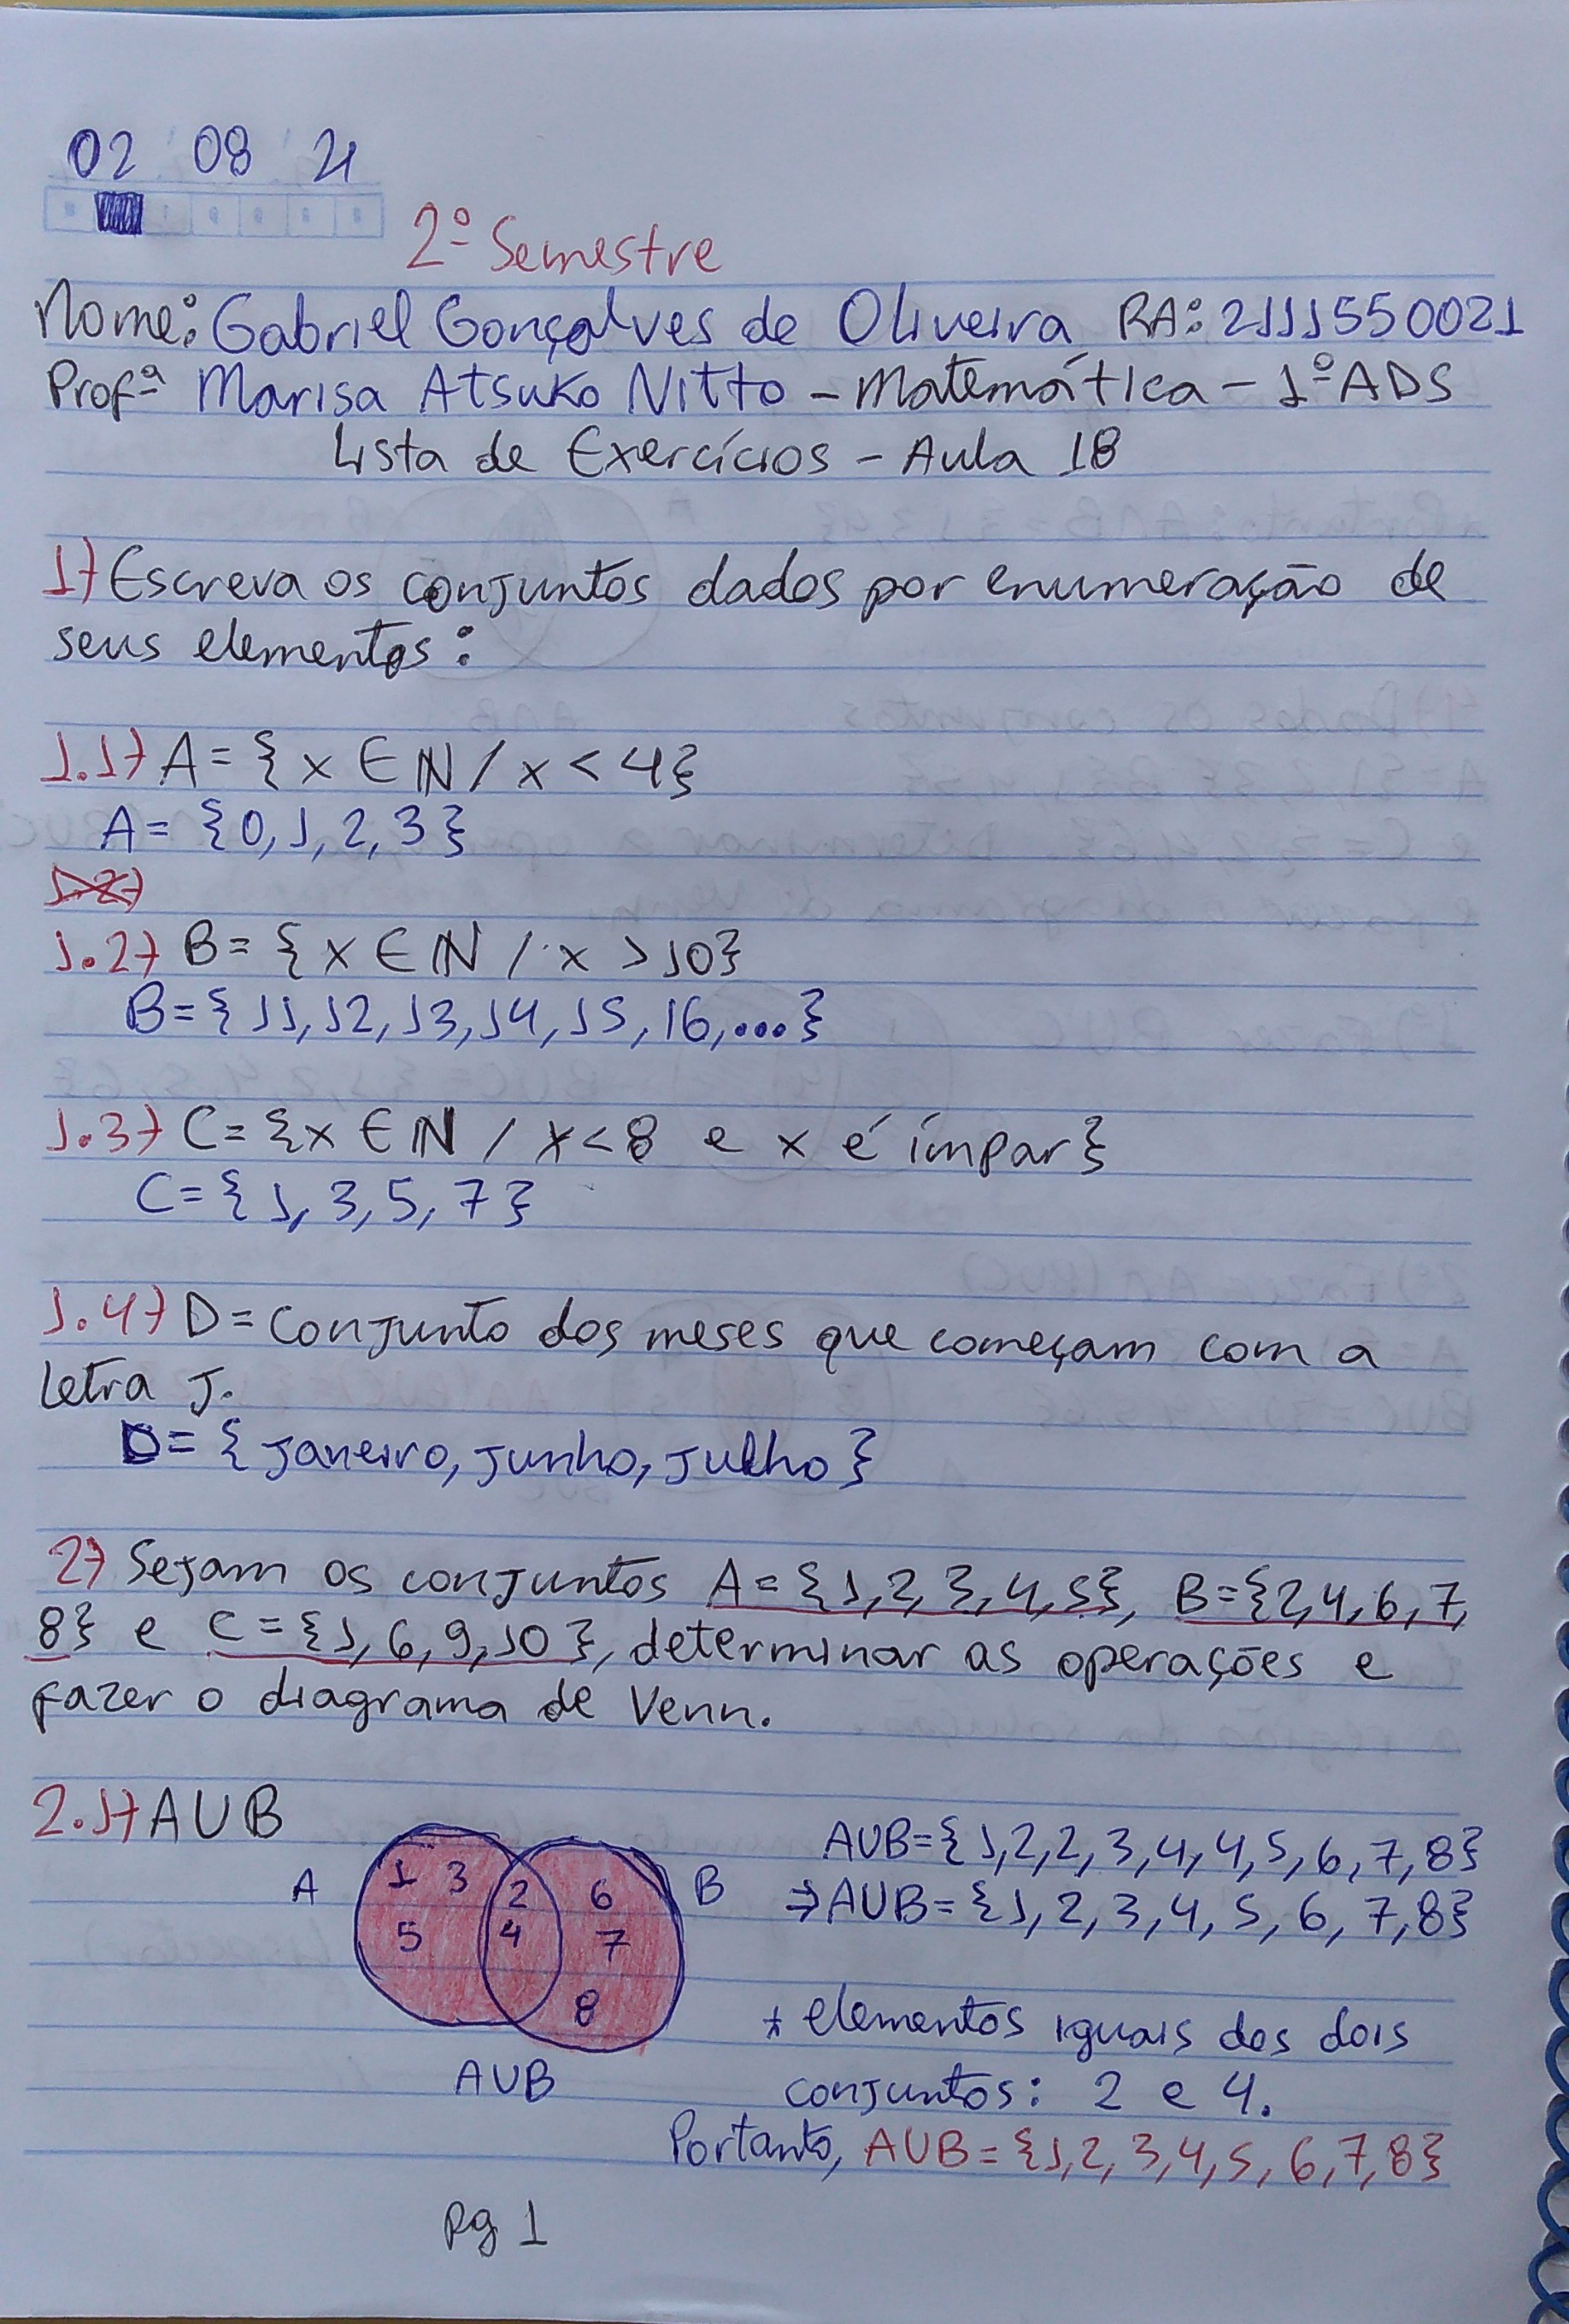 02 08 21
2º Semestre
Nome: Gabriel Gonçalves de Oliveira RA: 2111550021
Profª Marisa Atsuko Nitto - Matemática - 1º ADS
Lista de Exercícios - Aula 18
1) Escreva os conjuntos dados por enumeração de
seus elementos:
1.1) A = {x ∈ ℕ / x < 4}
A = {0, 1, 2, 3}
1.2) B = {x ∈ ℕ / x > 10}
B = {11, 12, 13, 14, 15, 16, ...}
1.3) C = {x ∈ ℕ / x < 8 e x é ímpar}
C = {1, 3, 5, 7}
1.4) D = Conjunto dos meses que começam com a
letra J.
D = {janeiro, junho, julho}
2) Sejam os conjuntos A = {1, 2, 3, 4, 5}, B = {2, 4, 6, 7,
8} e C = {1, 6, 9, 10}, determinar as operações e
fazer o diagrama de Venn.
2.1) A U B
AUB = {1, 2, 2, 3, 4, 4, 5, 6, 7, 8}
A 1 3 2 6 B ⇒ AUB = {1, 2, 3, 4, 5, 6, 7, 8}
5 4 7
8
* elementos iguais dos dois
AUB conjuntos: 2 e 4.
Portanto, AUB = {1, 2, 3, 4, 5, 6, 7, 8}
pg 1